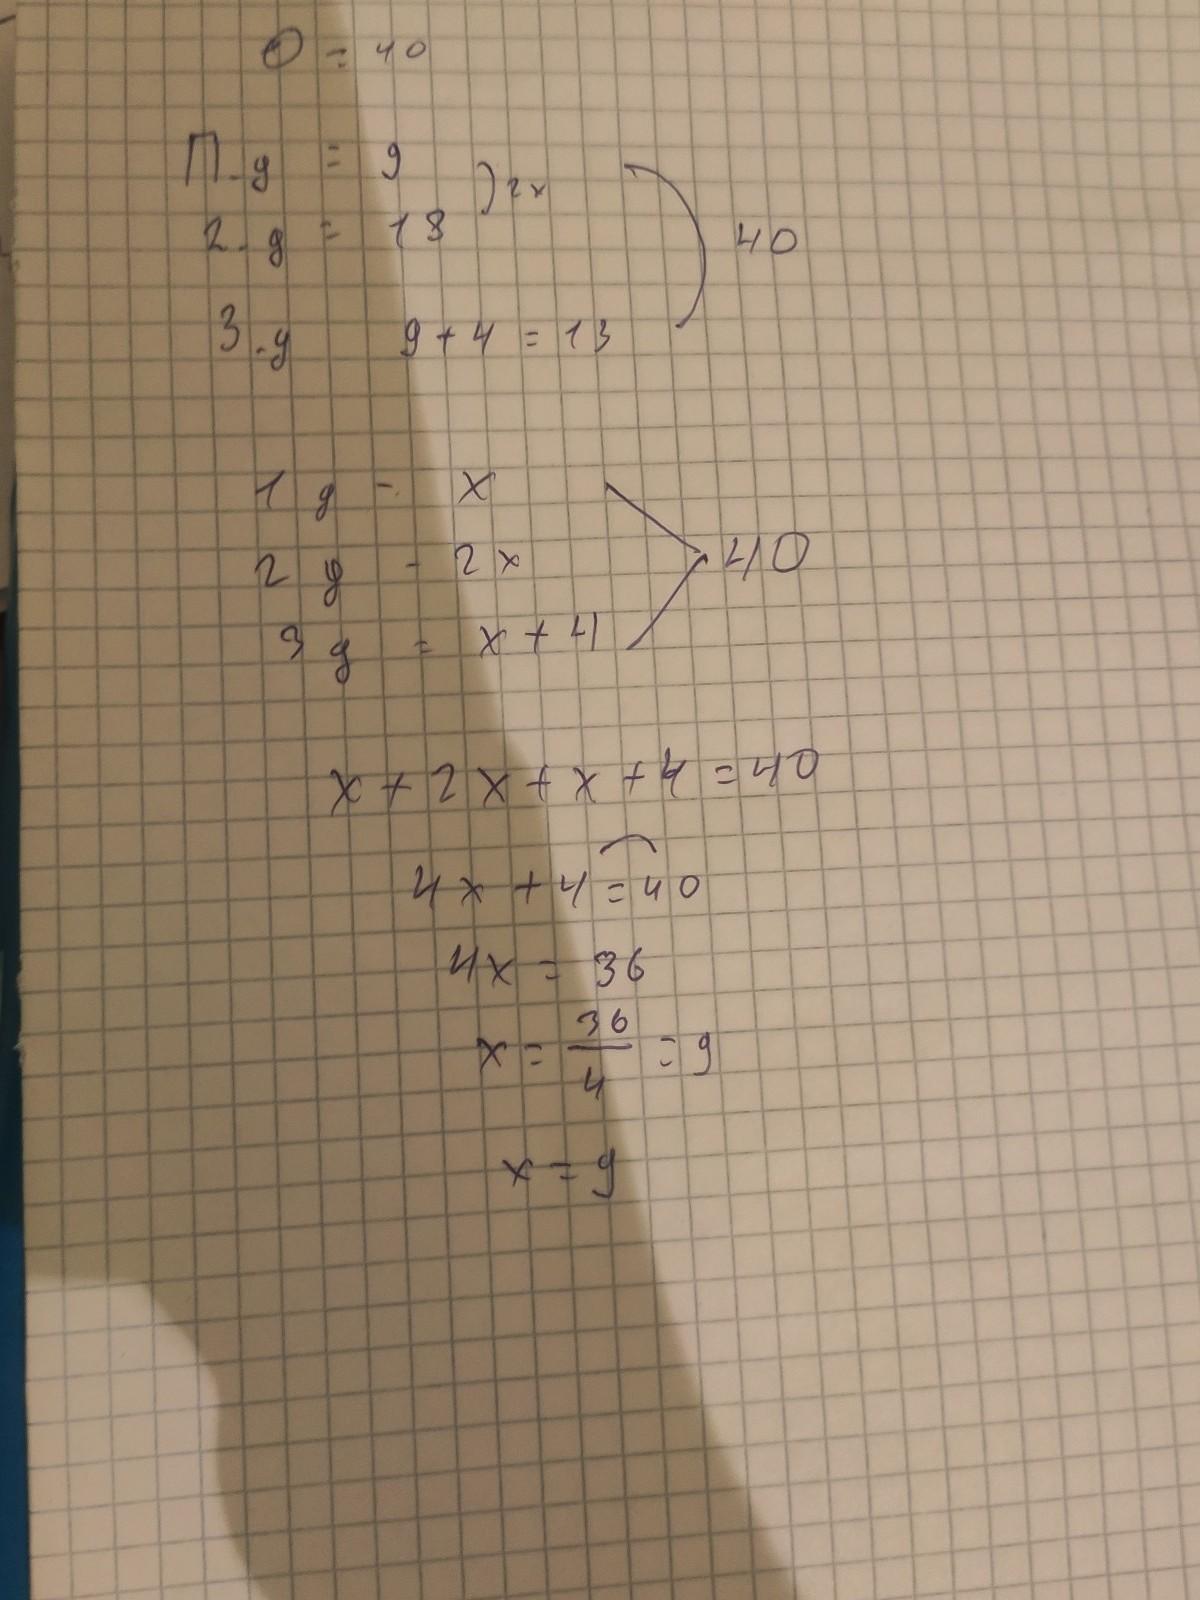 O = 40
П.д = 9
2.д = 18 ) 2x
3.д 9 + 4 = 13 ) 40
1 д - x
2 д - 2x 40
3 д = x + 4
x + 2x + x + 4 = 40
4x + 4 = 40
4x = 36
x = 36/4 = 9
x = 9